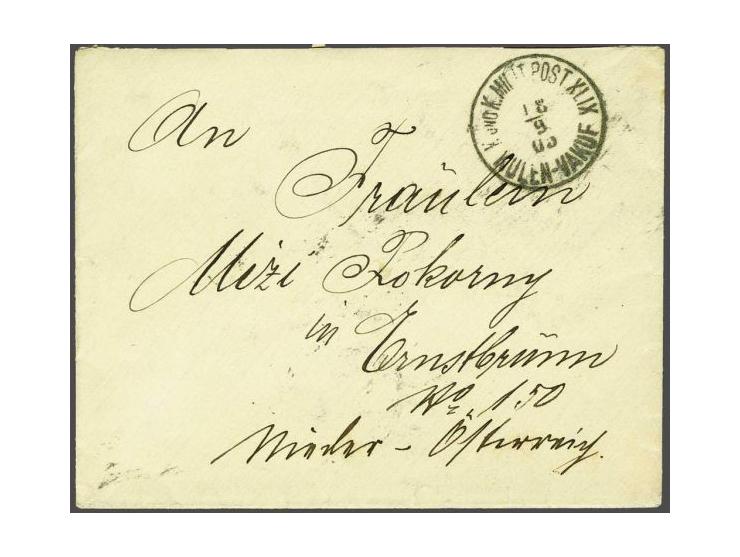 K. UND K. MILIT. POST XLIX
13/9
03
KULEN-VAKUF
An
Fräulein
Mizi Pokorny
in
Ernstbrünn
No. 150
Nieder-Österreich.